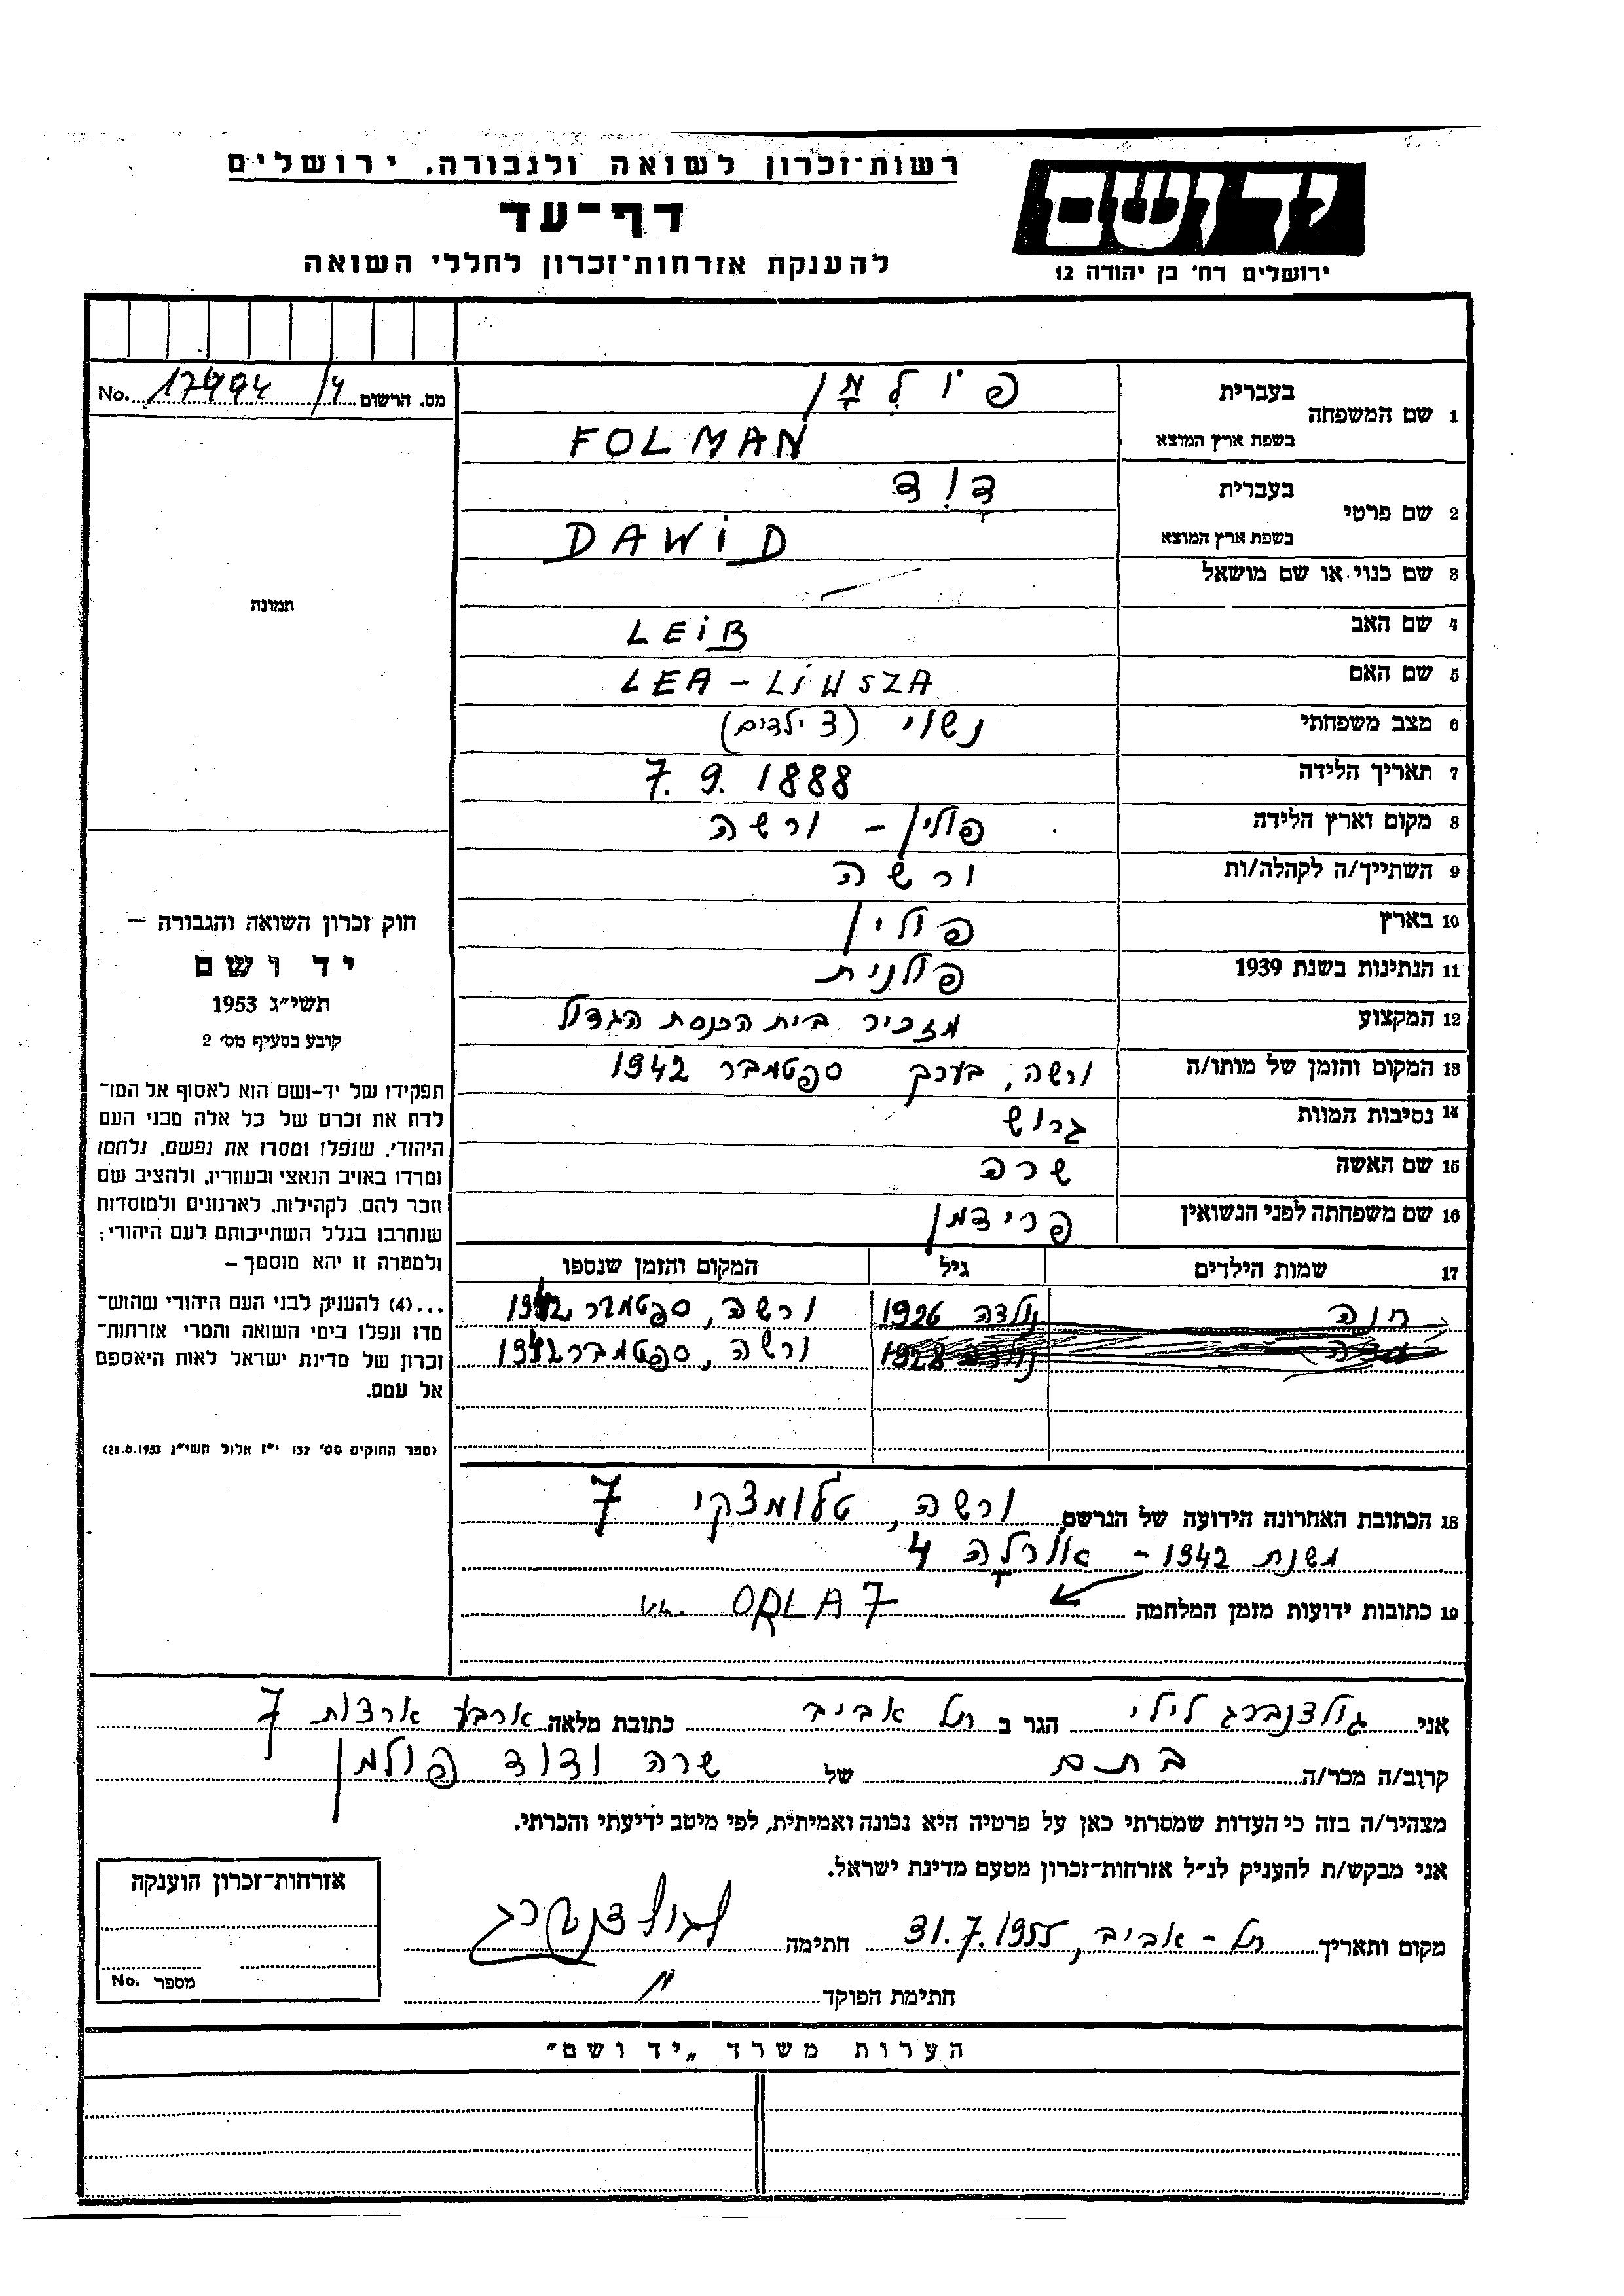 רשות-זכרון לשואה ולגבורה, ירושלים
דף-עד
להענקת אזרחות-זכרון לחללי השואה
יד ושם
ירושלים רח' בן יהודה 12
מס. הרשום 17494/4 No.
תמונה
1 שם המשפחה בעברית פוֹלְמָן
בשפת ארץ המוצא FOLMAN
2 שם פרטי בעברית דָוִד
בשפת ארץ המוצא DAWID
3 שם כנוי או שם מושאל
4 שם האב LEIB
5 שם האם LEA -
6 מצב משפחתי נשוי (3 ילדים)
7 תאריך הלידה 7.9.1888
8 מקום וארץ הלידה פולין - ורשה
9 השתייך/ה לקהלה/ות ורשה
10 בארץ פולין
11 הנתינות בשנת 1939 פולנית
12 המקצוע מזכיר בית הכנסת הגדול
13 המקום והזמן של מותו/ה ורשה, בערך ספטמבר 1942
14 נסיבות המוות גרוש
15 שם האשה שרה
16 שם משפחתה לפני הנשואין פרידמן
17 שמות הילדים גיל המקום והזמן שנספו
חנה נולדה 1926 ורשה, ספטמבר 1942
נולדה 1928 ורשה, ספטמבר 1942
18 הכתובת האחרונה הידועה של הנרשם ורשה, טלומצקי 7
משנת 1942 - אורלה 4
19 כתובות ידועות מזמן המלחמה ul. ORLA 7
חוק זכרון השואה והגבורה –
יד ושם
תשי״ג 1953
קובע בסעיף מס' 2
תפקידו של יד-ושם הוא לאסוף אל המו־
לדת את זכרם של כל אלה מבני העם
היהודי, שנפלו ומסרו את נפשם, נלחמו
ומרדו באויב הנאצי ובעוזריו, ולהציב שם
וזכר להם, לקהילות, לארגונים ולמוסדות
שנחרבו בגלל השתייכותם לעם היהודי;
ולמטרה זו יהא מוסמך –
...(4) להעניק לבני העם היהודי שהוש־
מדו ונפלו בימי השואה והמרי אזרחות־
זכרון של מדינת ישראל לאות היאספם
אל עמם.
(ספר החוקים מס' 132 י״ז אלול תשי״ג 28.8.1953)
אני גולדנברג לילי הגר ב תל אביב כתובת מלאה ארבע ארצות 7
קרוב/ה מכר/ה בתם של שרה ודוד פולמן
מצהיר/ה בזה כי העדות שמסרתי כאן על פרטיה היא נכונה ואמיתית, לפי מיטב ידיעתי והכרתי.
אני מבקש/ת להעניק לנ״ל אזרחות-זכרון מטעם מדינת ישראל.
מקום ותאריך תל-אביב, 31.7.1955 חתימה גולדנברג
חתימת הפוקד "
אזרחות-זכרון הוענקה
מספר No.
הערות משרד „יד ושם"